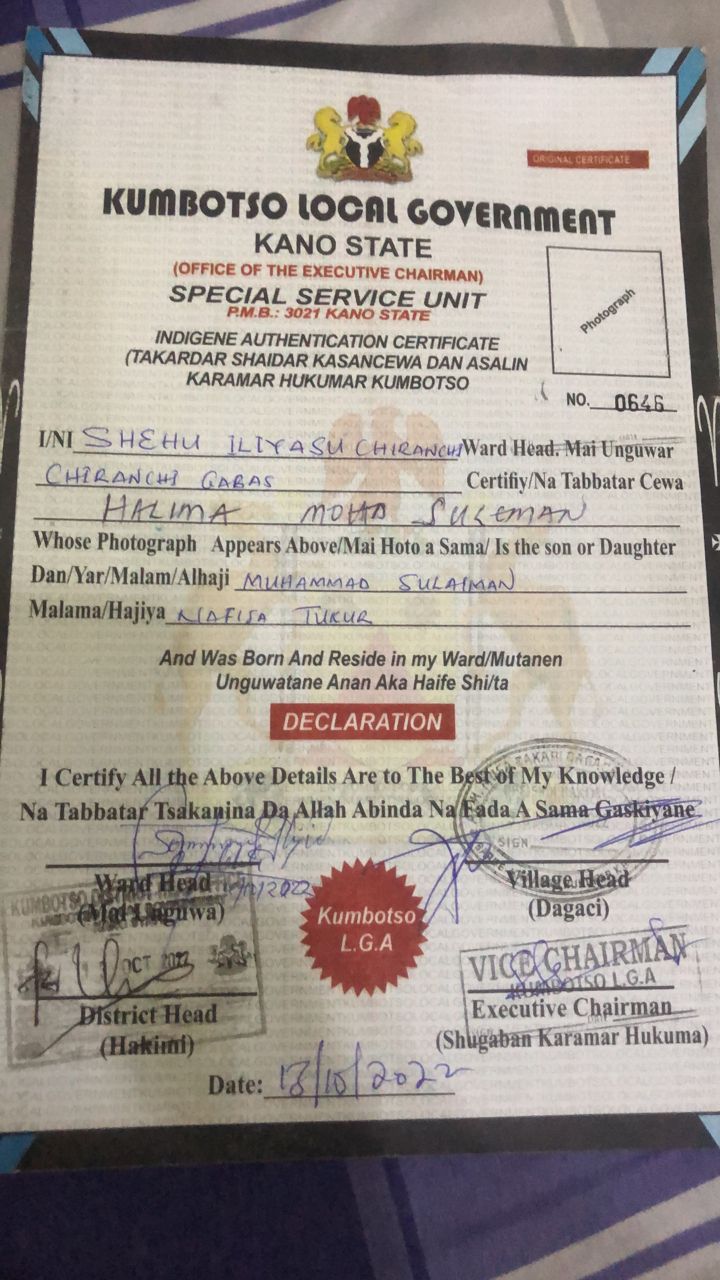 ORIGINAL CERTIFICATE
KUMBOTSO LOCAL GOVERNMENT
KANO STATE
(OFFICE OF THE EXECUTIVE CHAIRMAN)
SPECIAL SERVICE UNIT
P.M.B.: 3021 KANO STATE
INDIGENE AUTHENTICATION CERTIFICATE
(TAKARDAR SHAIDAR KASANCEWA DAN ASALIN
KARAMAR HUKUMAR KUMBOTSO
Photograph
NO. 0646
I/NI SHEHU ILIYASU CHIRANCHI Ward Head. Mai Unguwar
CHIRANCHI GABAS Certifiy/Na Tabbatar Cewa
HALIMA MOHD SULEMAN
Whose Photograph Appears Above/Mai Hoto a Sama/ Is the son or Daughter
Dan/Yar/Malam/Alhaji MUHAMMAD SULAIMAN
Malama/Hajiya NAFISA TUKUR
And Was Born And Reside in my Ward/Mutanen
Unguwatane Anan Aka Haife Shi/ta
DECLARATION
I Certify All the Above Details Are to The Best of My Knowledge /
Na Tabbatar Tsakanina Da Allah Abinda Na Fada A Sama Gaskiyane
SIGN
Ward Head
(Mai Unguwa)
Village Head
(Dagaci)
Kumbotso
L.G.A
OCT 2022
District Head
(Hakimi)
VICE CHAIRMAN
KUMBOTSO L.G.A
Executive Chairman
(Shugaban Karamar Hukuma)
Date: 13/10/2022